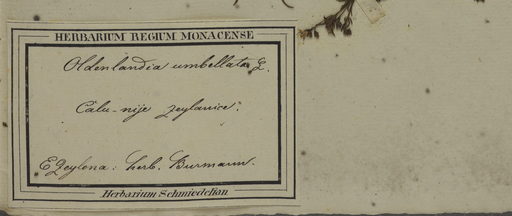 HERBARIUM REGIUM MONACENSE
Oldenlandia umbellata L.
Calu-nije zeylanice.
E Zeylona: herb. Burmann.
Herbarium Schmiedelian